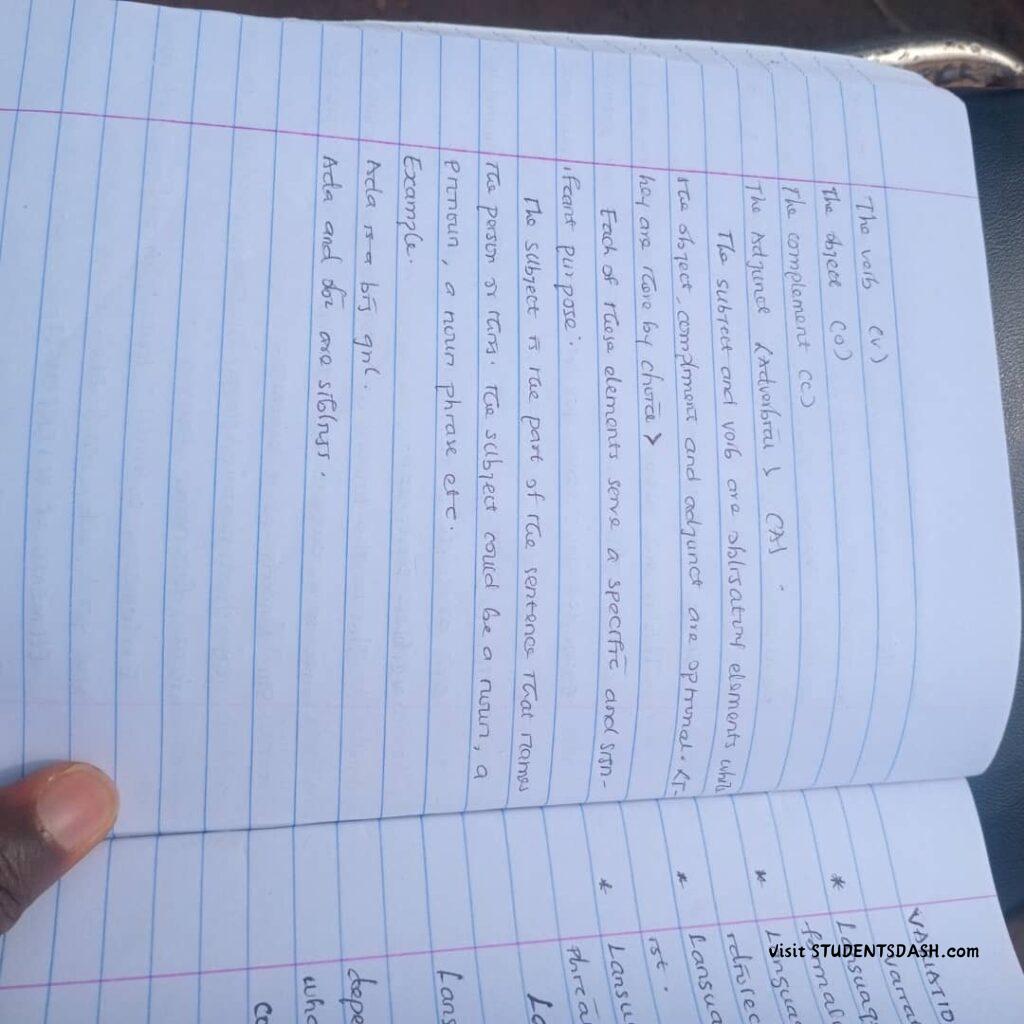 The verb (V)
The object (O)
The complement (C)
The Adjunct (Adverbial) (A).
The subject and verb are obligatory elements while
the object, compliment and adjunct are optional. (T-
hey are there by choice)
Each of these elements serve a specific and sign-
ificant purpose:
The subject is the part of the sentence that names
the person or thing. The subject could be a noun, a
pronoun, a noun phrase etc.
Example:
Ada is a big girl.
Ada and Obi are siblings.
VARIATIO
* Languag
formal
* Languag
* Langua
* Langu
depe
visit STUDENTSDASH.com